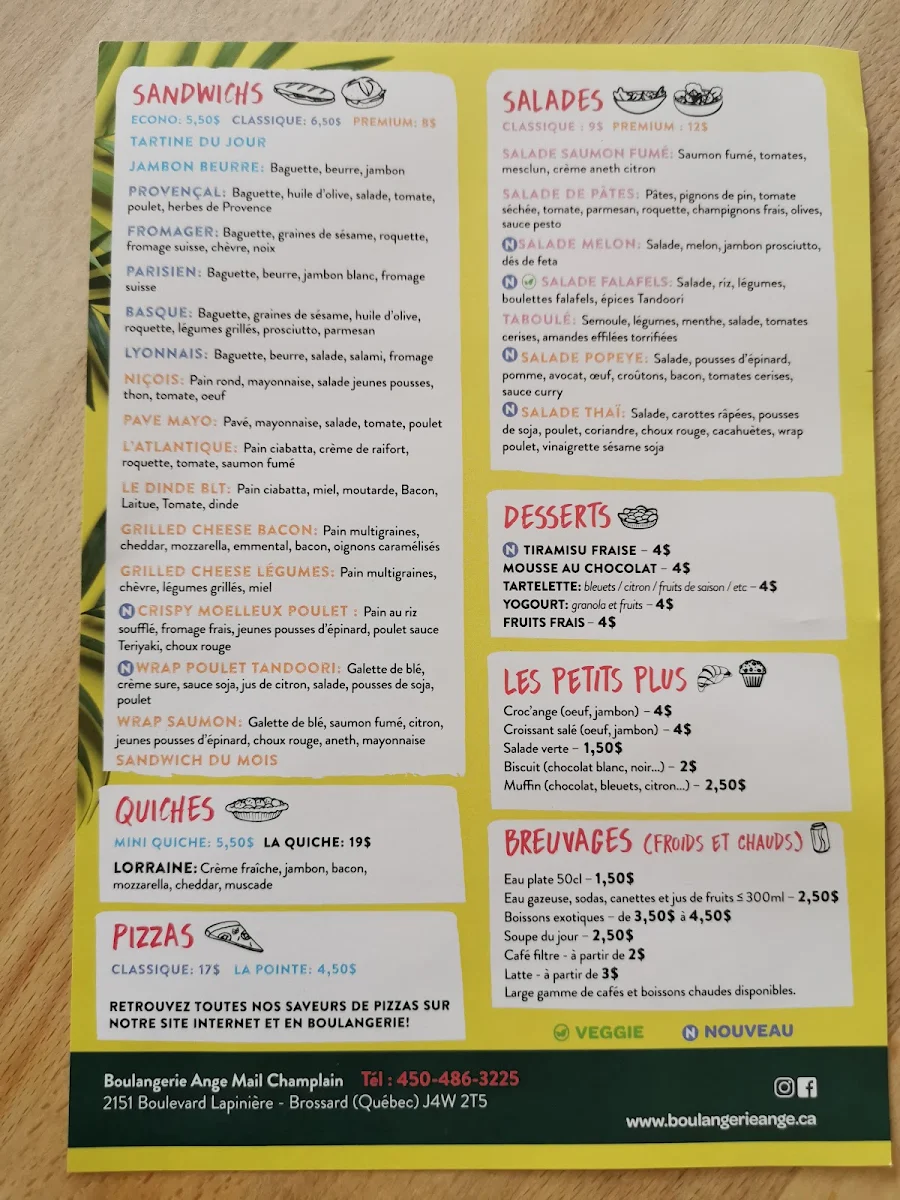 SANDWICHS
ECONO: 5,50$ CLASSIQUE: 6,50$ PREMIUM: 8$
TARTINE DU JOUR
JAMBON BEURRE: Baguette, beurre, jambon
PROVENÇAL: Baguette, huile d'olive, salade, tomate,
poulet, herbes de Provence
FROMAGER: Baguette, graines de sésame, roquette,
fromage suisse, chèvre, noix
PARISIEN: Baguette, beurre, jambon blanc, fromage
suisse
BASQUE: Baguette, graines de sésame, huile d'olive,
roquette, légumes grillés, prosciutto, parmesan
LYONNAIS: Baguette, beurre, salade, salami, fromage
NIÇOIS: Pain rond, mayonnaise, salade jeunes pousses,
thon, tomate, oeuf
PAVE MAYO: Pavé, mayonnaise, salade, tomate, poulet
L'ATLANTIQUE: Pain ciabatta, crème de raifort,
roquette, tomate, saumon fumé
LE DINDE BLT: Pain ciabatta, miel, moutarde, Bacon,
Laitue, Tomate, dinde
GRILLED CHEESE BACON: Pain multigraines,
cheddar, mozzarella, emmental, bacon, oignons caramélisés
GRILLED CHEESE LÉGUMES: Pain multigraines,
chèvre, légumes grillés, miel
N CRISPY MOELLEUX POULET : Pain au riz
soufflé, fromage frais, jeunes pousses d'épinard, poulet sauce
Teriyaki, choux rouge
N WRAP POULET TANDOORI: Galette de blé,
crème sure, sauce soja, jus de citron, salade, pousses de soja,
poulet
WRAP SAUMON: Galette de blé, saumon fumé, citron,
jeunes pousses d'épinard, choux rouge, aneth, mayonnaise
SANDWICH DU MOIS
QUICHES
MINI QUICHE: 5,50$ LA QUICHE: 19$
LORRAINE: Crème fraîche, jambon, bacon,
mozzarella, cheddar, muscade
PIZZAS
CLASSIQUE: 17$ LA POINTE: 4,50$
RETROUVEZ TOUTES NOS SAVEURS DE PIZZAS SUR
NOTRE SITE INTERNET ET EN BOULANGERIE!
SALADES
CLASSIQUE : 9$ PREMIUM : 12$
SALADE SAUMON FUMÉ: Saumon fumé, tomates,
mesclun, crème aneth citron
SALADE DE PÂTES: Pâtes, pignons de pin, tomate
séchée, tomate, parmesan, roquette, champignons frais, olives,
sauce pesto
N SALADE MELON: Salade, melon, jambon prosciutto,
dés de feta
N SALADE FALAFELS: Salade, riz, légumes,
boulettes falafels, épices Tandoori
TABOULÉ: Semoule, légumes, menthe, salade, tomates
cerises, amandes effilées torrifiées
N SALADE POPEYE: Salade, pousses d'épinard,
pomme, avocat, œuf, croûtons, bacon, tomates cerises,
sauce curry
N SALADE THAÏ: Salade, carottes râpées, pousses
de soja, poulet, coriandre, choux rouge, cacahuètes, wrap
poulet, vinaigrette sésame soja
DESSERTS
N TIRAMISU FRAISE – 4$
MOUSSE AU CHOCOLAT – 4$
TARTELETTE: bleuets / citron / fruits de saison / etc – 4$
YOGOURT: granola et fruits – 4$
FRUITS FRAIS – 4$
LES PETITS PLUS
Croc'ange (oeuf, jambon) – 4$
Croissant salé (oeuf, jambon) – 4$
Salade verte – 1,50$
Biscuit (chocolat blanc, noir...) – 2$
Muffin (chocolat, bleuets, citron...) – 2,50$
BREUVAGES (FROIDS ET CHAUDS)
Eau plate 50cl – 1,50$
Eau gazeuse, sodas, canettes et jus de fruits ≤ 300ml – 2,50$
Boissons exotiques – de 3,50$ à 4,50$
Soupe du jour – 2,50$
Café filtre - à partir de 2$
Latte - à partir de 3$
Large gamme de cafés et boissons chaudes disponibles.
VEGGIE N NOUVEAU
Boulangerie Ange Mail Champlain Tél : 450-486-3225
2151 Boulevard Lapinière - Brossard (Québec) J4W 2T5
www.boulangerieange.ca